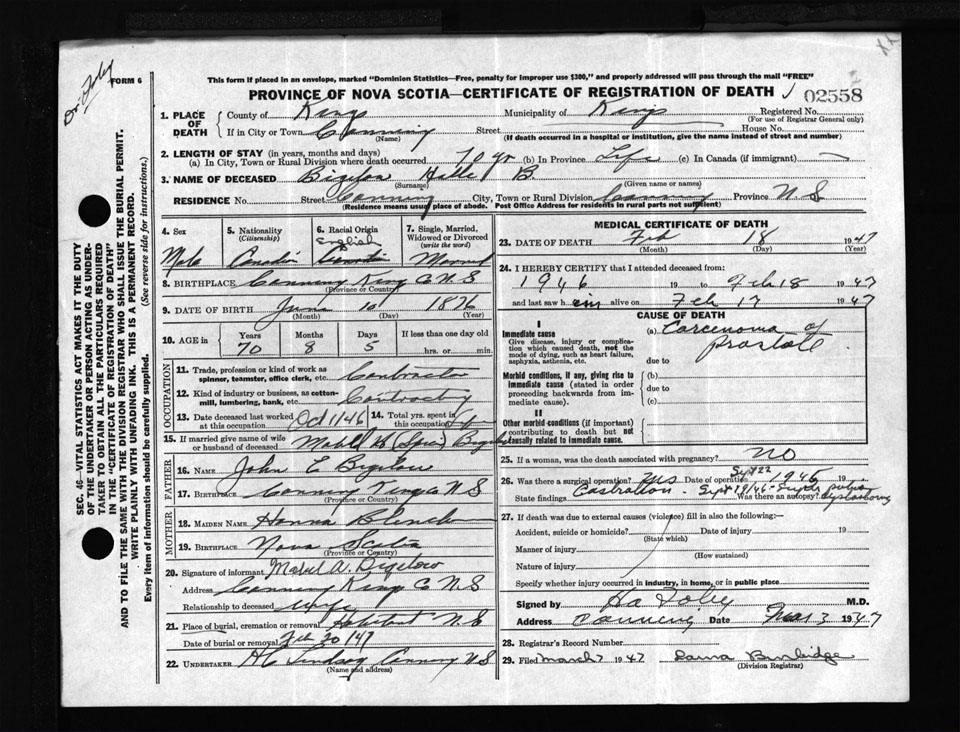 Dr. Foley
FORM 6
This form if placed in an envelope, marked "Dominion Statistics—Free, penalty for improper use $300," and properly addressed will pass through the mail "FREE"
PROVINCE OF NOVA SCOTIA—CERTIFICATE OF REGISTRATION OF DEATH
02558
1. PLACE OF DEATH
County of Kings Municipality of Kings Registered No.
(For use of Registrar General only)
If in City or Town Canning Street House No.
(Name) (If death occurred in a hospital or institution, give the name instead of street and number)
2. LENGTH OF STAY (in years, months and days)
(a) In City, Town or Rural Division where death occurred 70 yr (b) In Province Life (c) In Canada (if immigrant) —
3. NAME OF DECEASED Bigelow B.
(Surname) (Given name or names)
RESIDENCE No. Street Canning City, Town or Rural Division Canning Province N.S
(Residence means usual place of abode. Post Office Address for residents in rural parts not sufficient)
4. Sex Male
5. Nationality (Citizenship) Canadian
6. Racial Origin English
7. Single, Married, Widowed or Divorced (write the word) Married
8. BIRTHPLACE Canning Kings Co N.S
(Province or Country)
9. DATE OF BIRTH June 10 1876
(Month) (Day) (Year)
10. AGE in Years Months Days If less than one day old
70 8 5 hrs. or min.
OCCUPATION
11. Trade, profession or kind of work as spinner, teamster, office clerk, etc. Contractor
12. Kind of industry or business, as cotton-mill, lumbering, bank, etc. Contracting
13. Date deceased last worked at this occupation Oct 1/46 14. Total yrs. spent in this occupation
15. If married give name of wife or husband of deceased Mabel Bigelow
FATHER
16. NAME John E Bigelow
17. BIRTHPLACE Canning Kings Co N S
(Province or Country)
MOTHER
18. MAIDEN NAME Hanna Blench
19. BIRTHPLACE Nova Scotia
(Province or Country)
20. Signature of informant Mabel A. Bigelow
Address Canning Kings Co N.S
Relationship to deceased wife
21. Place of burial, cremation or removal Habitant N.S
Date of burial or removal Feb 20/47
22. UNDERTAKER H C Lindsay Canning N S
(Name and address)
MEDICAL CERTIFICATE OF DEATH
23. DATE OF DEATH Feb 18 1947
(Month) (Day) (Year)
24. I HEREBY CERTIFY that I attended deceased from:
1946 19 to Feb 18 1947
and last saw him alive on Feb 17 1947
CAUSE OF DEATH
I
Immediate cause (a) Carcinoma of Prostate
Give disease, injury or complication which caused death, not the mode of dying, such as heart failure, asphyxia, asthenia, etc.
due to
Morbid conditions, if any, giving rise to immediate cause (stated in order proceeding backwards from immediate cause).
(b)
due to
(c)
II
Other morbid conditions (if important) contributing to death but not causally related to immediate cause.
25. If a woman, was the death associated with pregnancy? NO
26. Was there a surgical operation? Yes Date of operation Sept 22 1946 19
State findings Castration - Sept 29/46 - Was there an autopsy?
27. If death was due to external causes (violence) fill in also the following:—
Accident, suicide or homicide? Date of injury 19
(State which)
Manner of injury
(How sustained)
Nature of injury
Specify whether injury occurred in industry, in home, or in public place
Signed by M.D.
Address Canning Date Mar 3 1947
28. Registrar's Record Number
29. Filed March 7 1947 Laura Burbidge
(Division Registrar)
SEC. 46—VITAL STATISTICS ACT MAKES IT THE DUTY
OF THE UNDERTAKER OR PERSON ACTING AS UNDER-
TAKER TO OBTAIN ALL THE PARTICULARS REQUIRED
IN THE "CERTIFICATE OF REGISTRATION OF DEATH"
AND TO FILE THE SAME WITH THE DIVISION REGISTRAR WHO SHALL ISSUE THE BURIAL PERMIT.
WRITE PLAINLY WITH UNFADING INK. THIS IS A PERMANENT RECORD.
Every item of information should be carefully supplied. (See reverse side for instructions.)